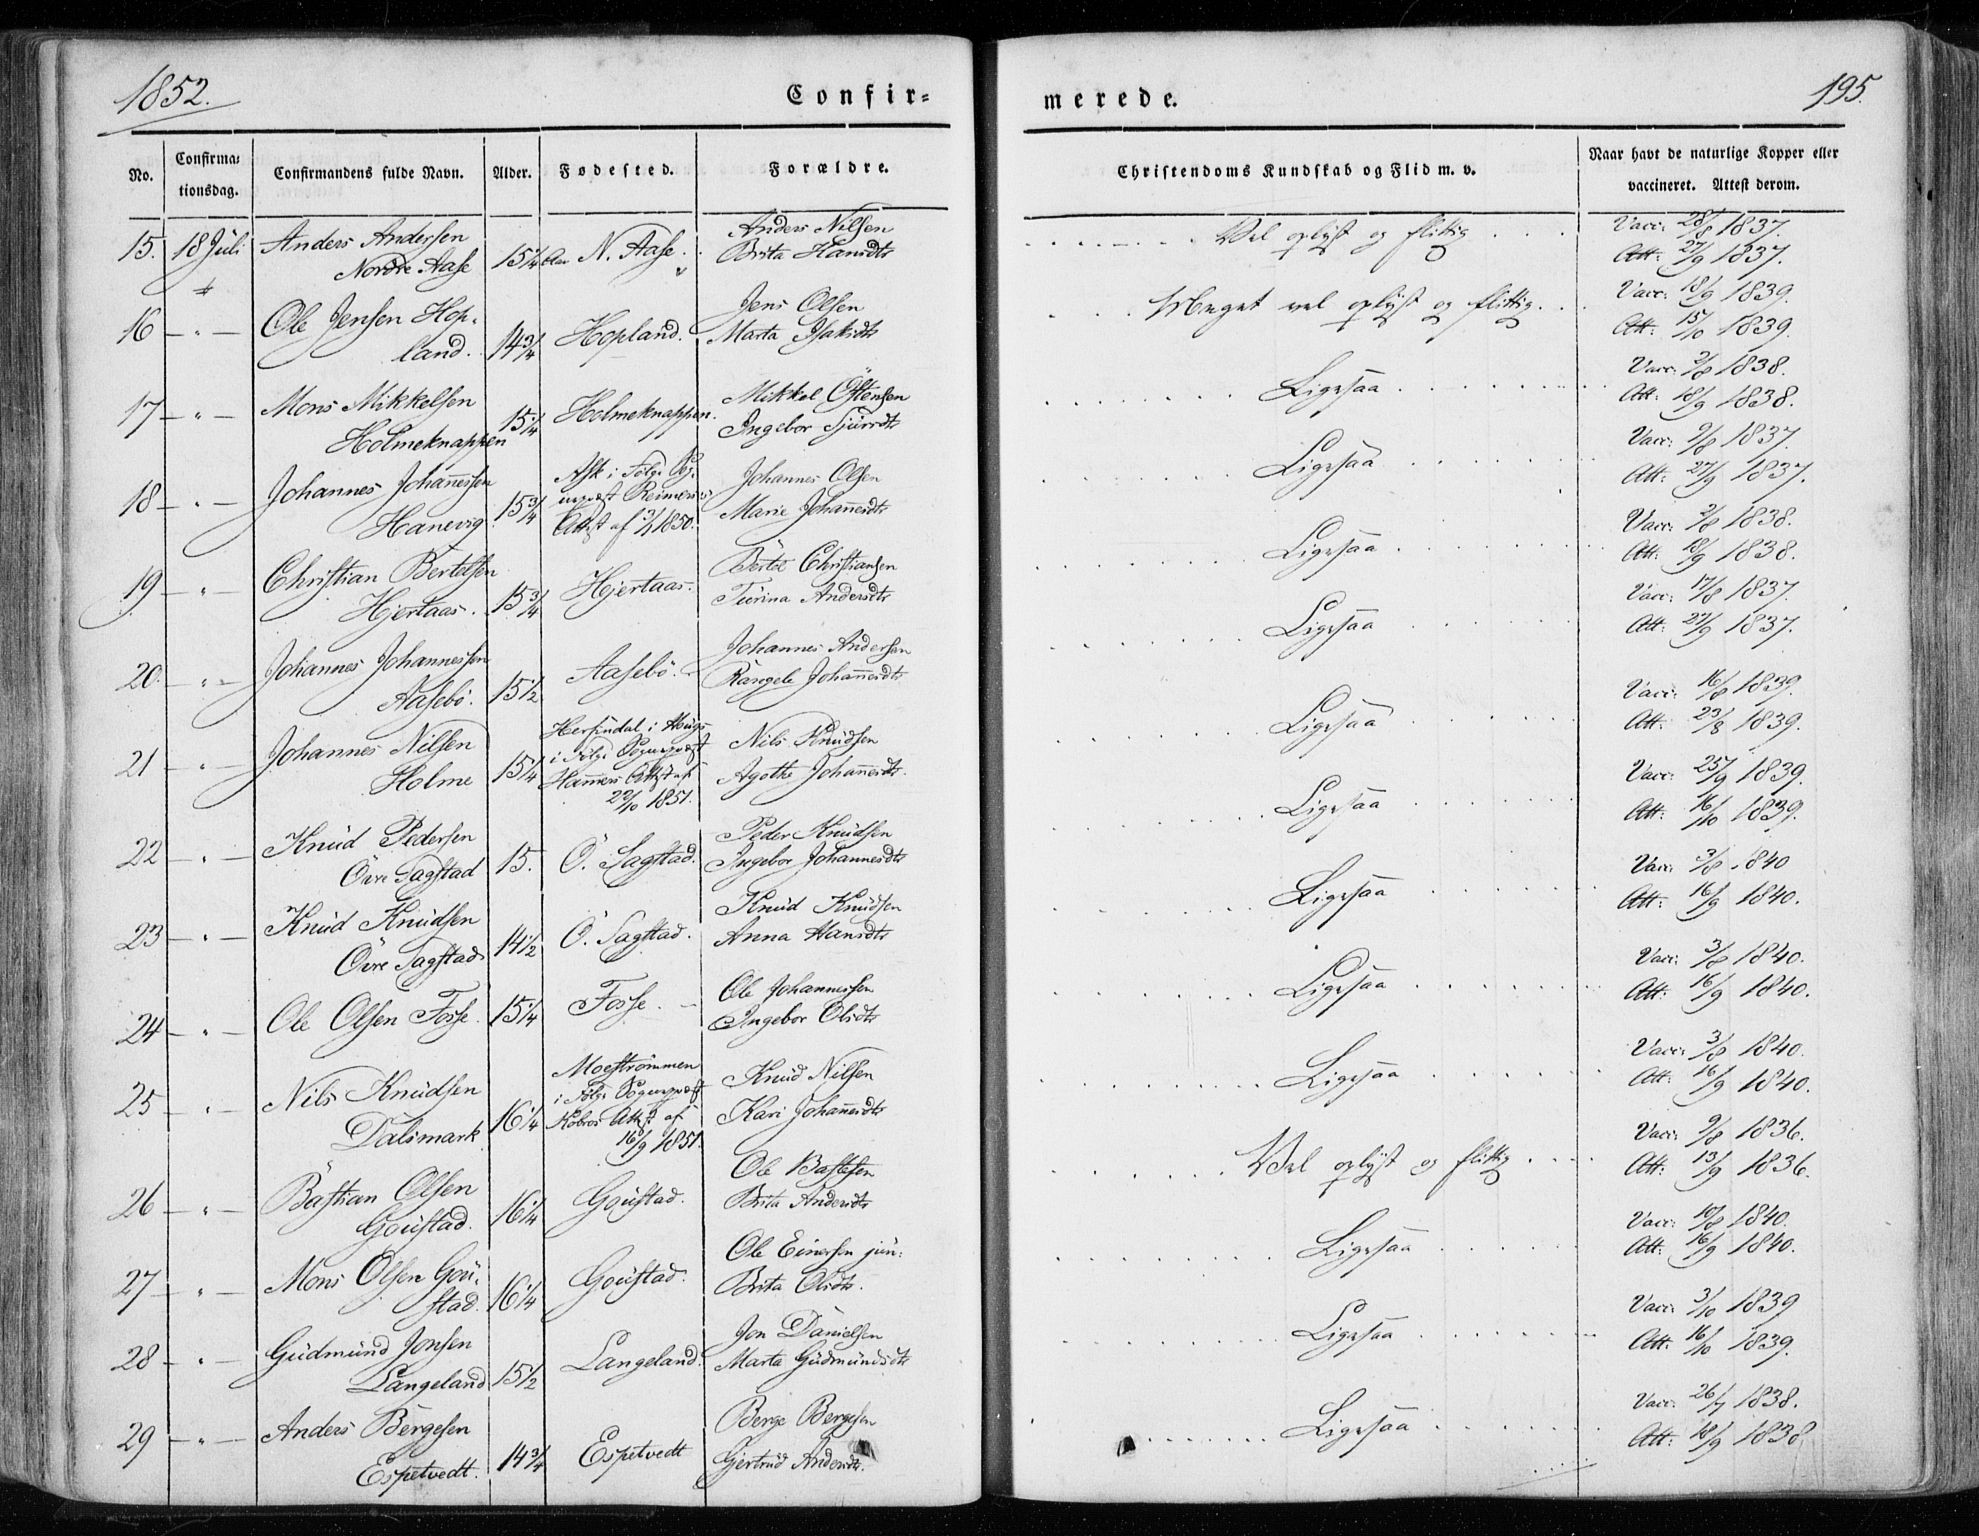 1852.
Confir=
merede.
195.
No.
Confirma=
tionsdag.
Confirmandens fulde Navn.
Alder.
Fødested.
Forældre.
Christendoms Kundskab og Flid m. v.
Naar havt de naturlige Kopper eller
vaccineret. Attest derom.
15. 18 Juli Anders Andersen 15 1/4 N. Aase. Anders Nilsen
Nordre Aase Brita Hansdtr
Vel oplyst og flittig
Vacc: 28/8 1837.
Att: 27/9 1837.
16 — " — Ole Jensen Hop- 14 3/4 Hopland. Jens Olsen
land. Marta Isaksdtr
Meget vel oplyst og flittig.
Vacc: 18/9 1839.
Att: 15/10 1839.
17 — " — Mons Mikkelsen 15 1/4 Holmeknappen. Mikkel Östensen
Holmeknappen Ingebor Sjurdtr
Ligesaa
Vacc: 2/8 1838.
Att: 18/9 1838.
18 — " — Johannes Johannessen 15 3/4 Ask i Følge Sog- Johannes Olsen
Hanevig nepræst Reimers Marie Johannesdtr
Attest af 3/1 1850.
Ligesaa
Vacc: 9/8 1837.
Att: 27/9 1837.
19 — " — Christian Bertelsen 15 3/4 Hjertaas. Bertel Christiansen
Hjertaas. Turina Andersdtr
Ligesaa
Vacc: 2/8 1838.
Att: 18/9 1838.
20. — " — Johannes Johannessen 15 1/2 Aasebö. Johannes Andersen
Aasebö. Rangele Johannesdtr
Ligesaa
Vacc: 17/8 1837.
Att: 27/9 1837.
21 — " — Johannes Nilsen 15 1/4 Herfindal i Hougs Nils Knudsen
Holme i Følge Sognepræst Agothe Johannesdtr.
Hammers Attest af
22/10 1851.
Ligesaa
Vacc: 16/8 1839.
Att: 23/8 1839.
22 — " — Knud Pedersen 15. Ö. Sagstad. Peder Knudsen
Övre Sagstad Ingebor Johannesdtr
Ligesaa
Vacc: 25/9 1839.
Att: 16/10 1839.
23 — " — Knud Knudsen 14 1/2 Ö. Sagstad. Knud Knudsen
Övre Sagstad Anna Hansdtr
Ligesaa
Vacc: 3/8 1840
Att: 16/9 1840.
24 — " — Ole Olsen Fosse 15 1/4 Fosse. — Ole Johannessen
Ingebor Olsdtr
Ligesaa
Vacc: 3/8 1840.
Att: 16/9 1840.
25 — " — Nils Knudsen 16 1/4 Moestrømmen Knud Nilsen
Dalsmark i Følge Sognepræst Kari Johannesdtr
Kobros Attest af
16/9 1851.
Ligesaa
Vacc: 3/8 1840.
Att: 16/9 1840.
26 — " — Bastian Olsen 16 1/4 Goustad. Ole Bastesen
Goustad. Brita Andersdtr
Vel oplyst og flittig
Vacc: 9/8 1836.
Att: 13/9 1836.
27 — " — Mons Olsen Gou- 16 1/4 Goustad. Ole Einersen jun:
stad. Brita Olsdtr.
Ligesaa
Vacc: 10/8 1840.
Att: 16/9 1840.
28 — " — Gudmund Jonsen 15 1/2 Langeland. Jon Danielsen
Langeland Marta Gudmundsdtr
Ligesaa
Vacc: 3/10 1839
Att: 16/10 1839.
29 — " — Anders Bergesen 14 3/4 Espetvedt Berge Bergesen
Espetvedt. Gjertrud Andersdtr.
Ligesaa
Vacc: 26/7 1838.
Att: 18/9 1838